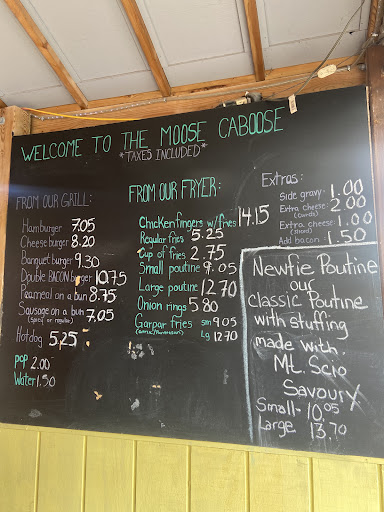 WELCOME TO THE MOOSE CABOOSE
*TAXES INCLUDED*
FROM OUR GRILL:
Hamburger 7.05
Cheeseburger 8.20
Banquet burger 9.30
Double BACON burger 10.75
Peameal on a bun 8.75
Sausage on a bun 7.05
(spicy or regular)
Hotdog 5.25
pop 2.00
Water 1.50
FROM OUR FRYER:
Chicken fingers w/fries 14.15
Regular fries 5.25
Cup of fries 2.75
Small poutine 9.05
Large poutine 12.70
Onion rings 5.80
Garpar fries sm 9.05
(Garlic/Parmesan) Lg 12.70
Extras:
Side gravy 1.00
Extra cheese: 2.00
(curds)
Extra cheese: 1.00
Add bacon 1.50
Newfie Poutine
our
Classic Poutine
with stuffing
made with
Mt. Scio
Savoury
Small- 10.05
Large 13.70